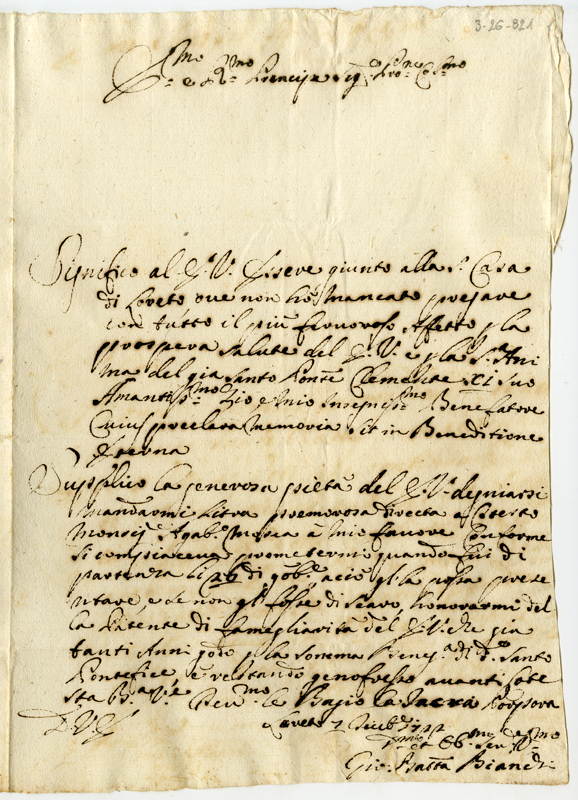 3-26-821
Em.mo e R.mo Principe Sig.e Pron.e Col.mo
Significo al E.V. Essere giunto alla S. Casa
di Loreto oue non hò mancato pregare
con tutto il più feruoroso affetto p la
prospera salute del E.V. e p la S. Ani
ma del già santo Ponte. Clemente XI suo
Amantiss.mo Zio e mio Insignis.mo Benefatore
Cuius preclara memoria sit in Beneditione
Eterna
Supplico la generosa pietà del E.V. degniarsi
mandarmi litra premorosa directa a
Monsig. Agab.o Mosca à mio fauore conforme
si compiaceua prometermi quando fui di
partenza li di 9bb.e aciò gl. la possa prese
ntare, e se non gl. fosse di scaro, honorarmi del
la Patente di famegliarità del E.V. che già
tanti Anni godo p la somma Benig.a di d.o Santo
Pontefice, e restando genoflesso auanti cote
sta le Bagio la Sacra Porpora
D.V.E.
Loreto 7 Dicbe
Gio. Batta Bianchi